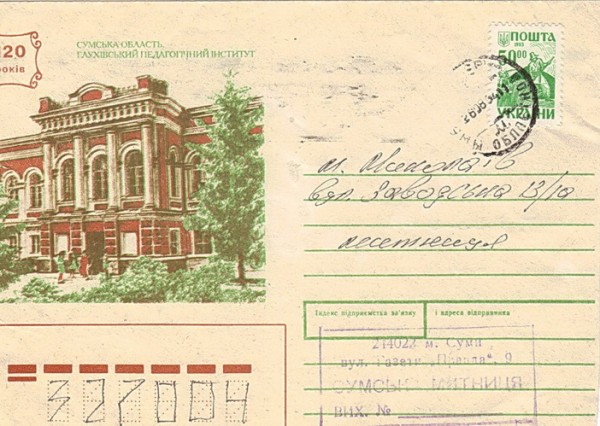 120
років
СУМСЬКА ОБЛАСТЬ.
ГЛУХІВСЬКИЙ ПЕДАГОГІЧНИЙ ІНСТИТУТ
ПОШТА
1993
50.00
УКРАЇНИ
м. Миколаїв
вул. Заводська 13/10
митниця
Індекс підприємства зв'язку і адреса відправника
244022 м. Суми
вул. Газети „Правда", 9
СУМСЬК МИТНИЦЯ
ВИХ. №
327004